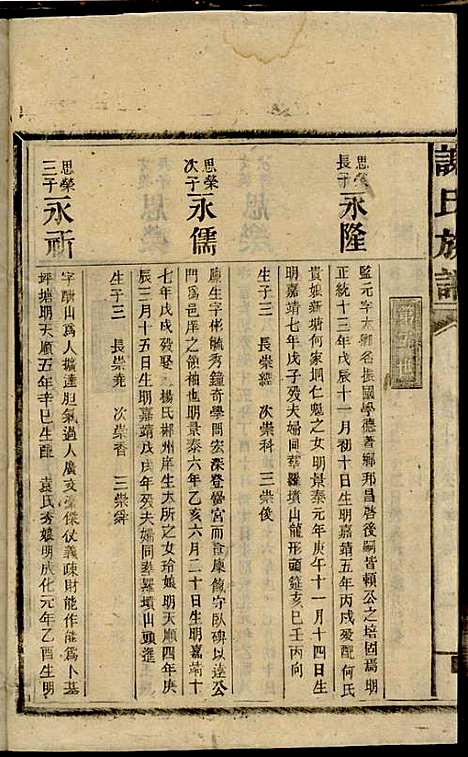 謝氏族譜
思榮
長子
永隆
監元字太卿名振國學德著鄉邦昌啓後嗣皆賴公之培固焉明
正統十三年戊辰十一月初十日生明嘉靖五年丙戌歿配何氏
貴娘新塘何家垌仁魁之女明景泰元年庚午十一月十四日生
明嘉靖七年戊子歿夫婦同葬羅墳山龍形頭筵亥巳壬丙向
生子三 長崇 次崇科 三崇俊
思榮
次子
永儒
廩生字彬毓秀鐘奇學問宏深登黌宮而食廩餼守臥碑以達公
門為邑庠之領袖也明景泰六年乙亥六月二十日生明嘉靖十
七年戊戌歿娶楊氏郴州庠生太所之女玲娘明天順四年庚
辰三月十五日生明嘉靖戊戌年歿夫婦同葬羅墳山頭進
生子三 長崇堯 次崇香 三崇舜
思榮
三子
永祈
字酬山為人擴達胆氣過人廣交豪傑仗義疎財能作能為卜基
坪塘明天順五年辛巳生配袁氏秀娘明成化元年乙酉生明